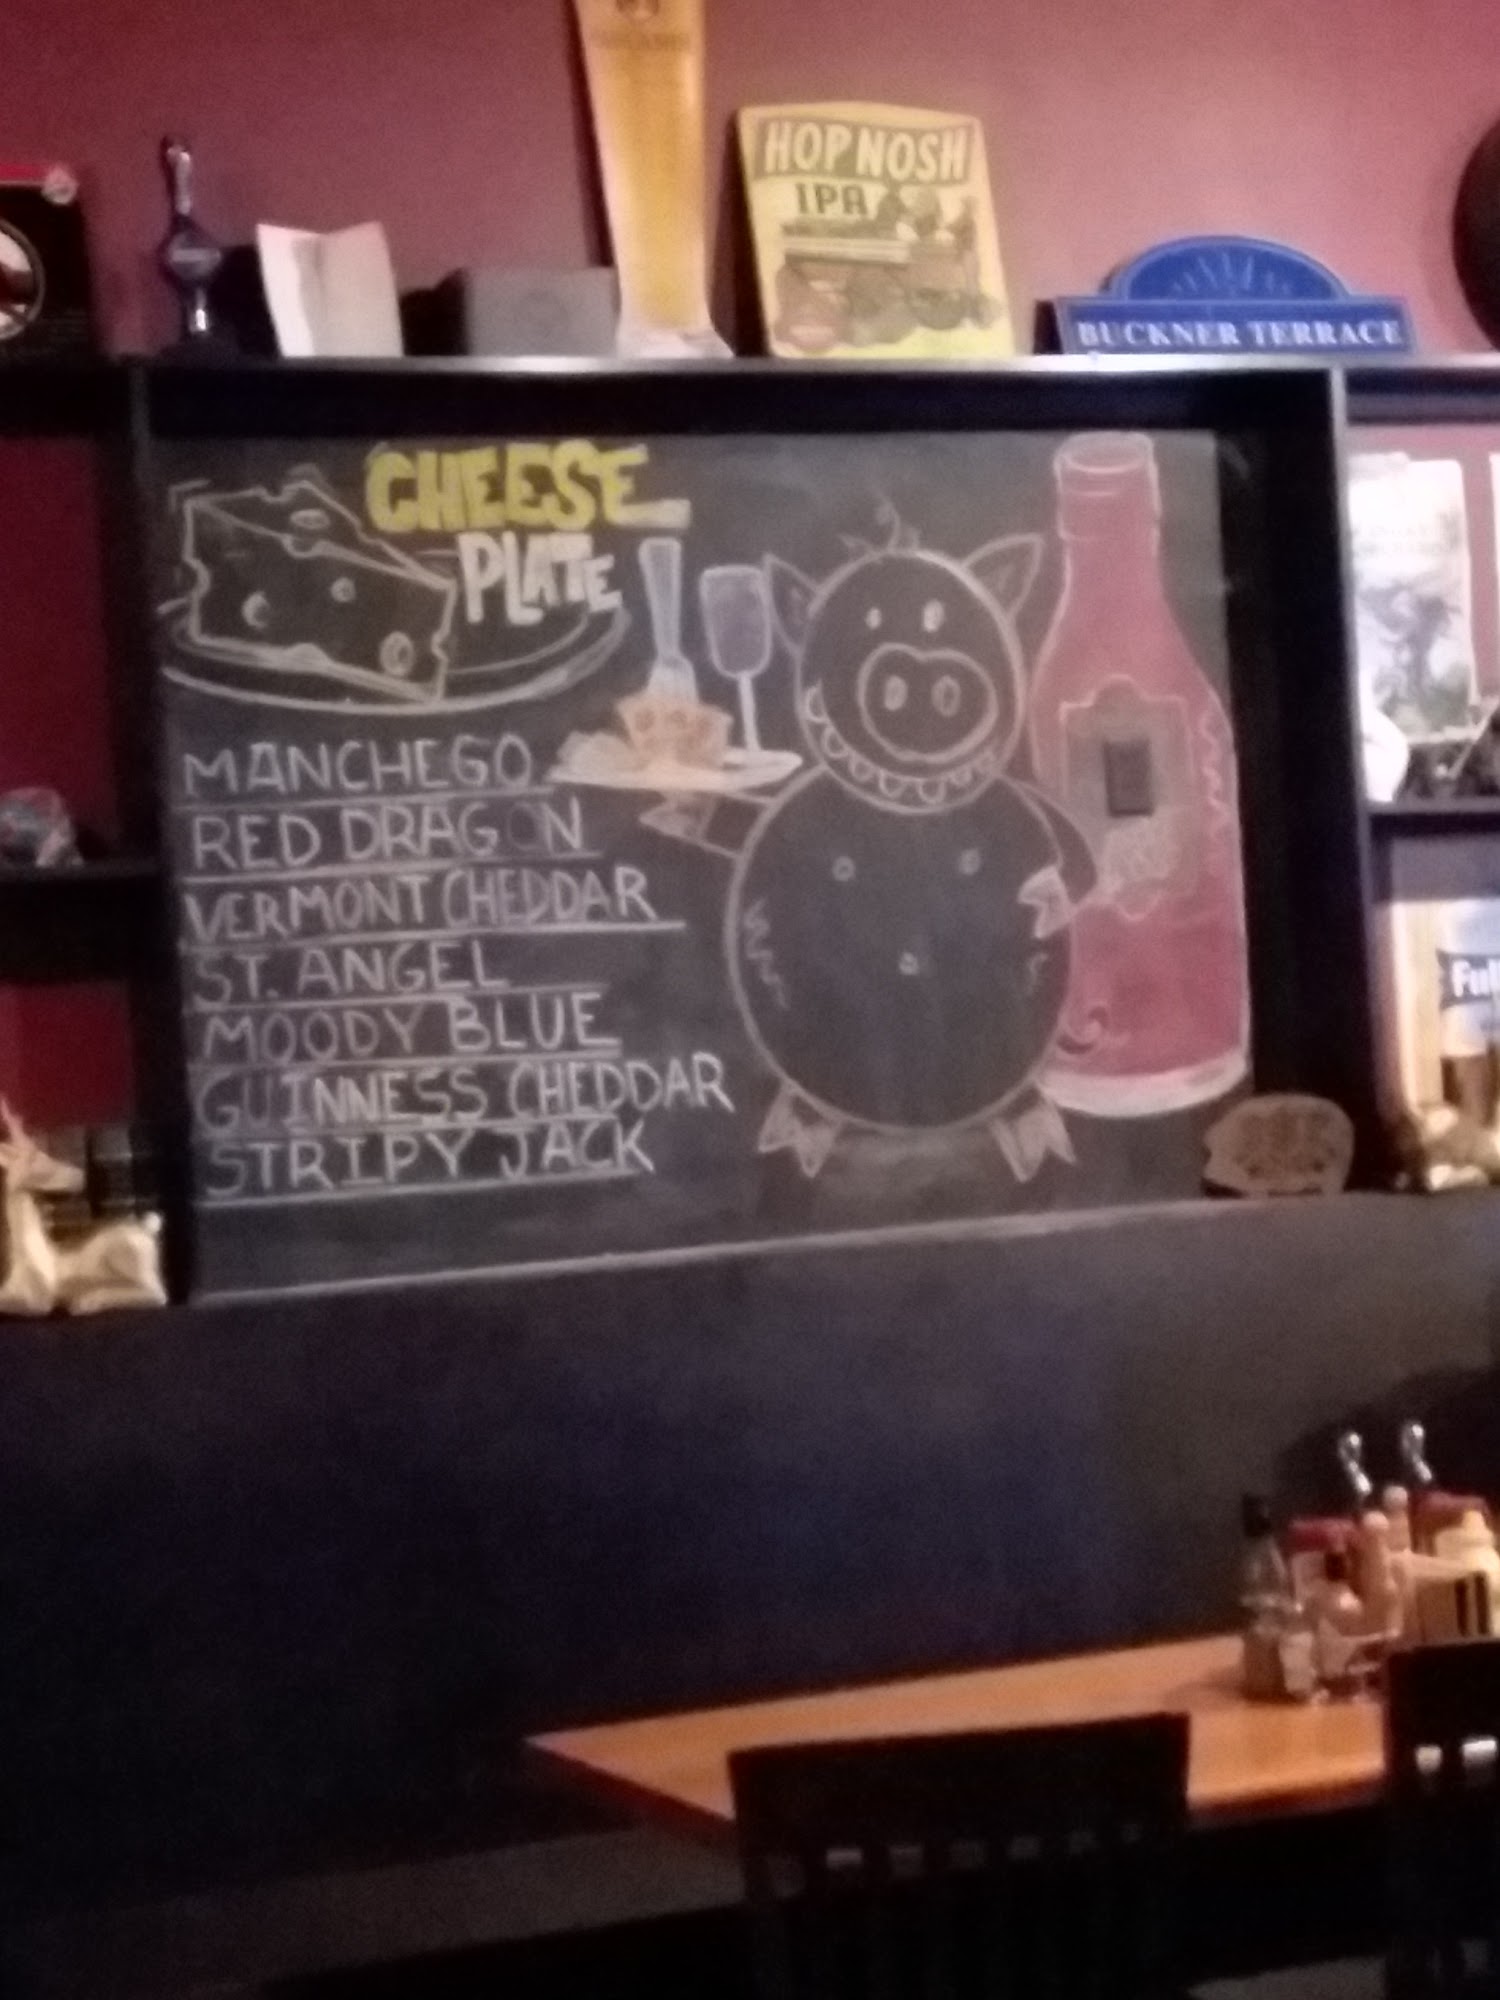 HOP NOSH
IPA
BUCKNER TERRACE
CHEESE
PLATE
MANCHEGO
RED DRAGON
VERMONT CHEDDAR
ST. ANGEL
MOODY BLUE
GUINNESS CHEDDAR
STRIPY JACK